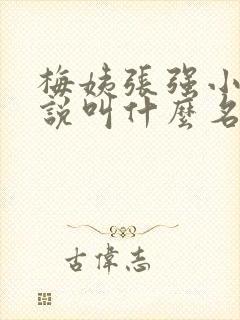 梅姨張強小
說叫什麼名
古偉志